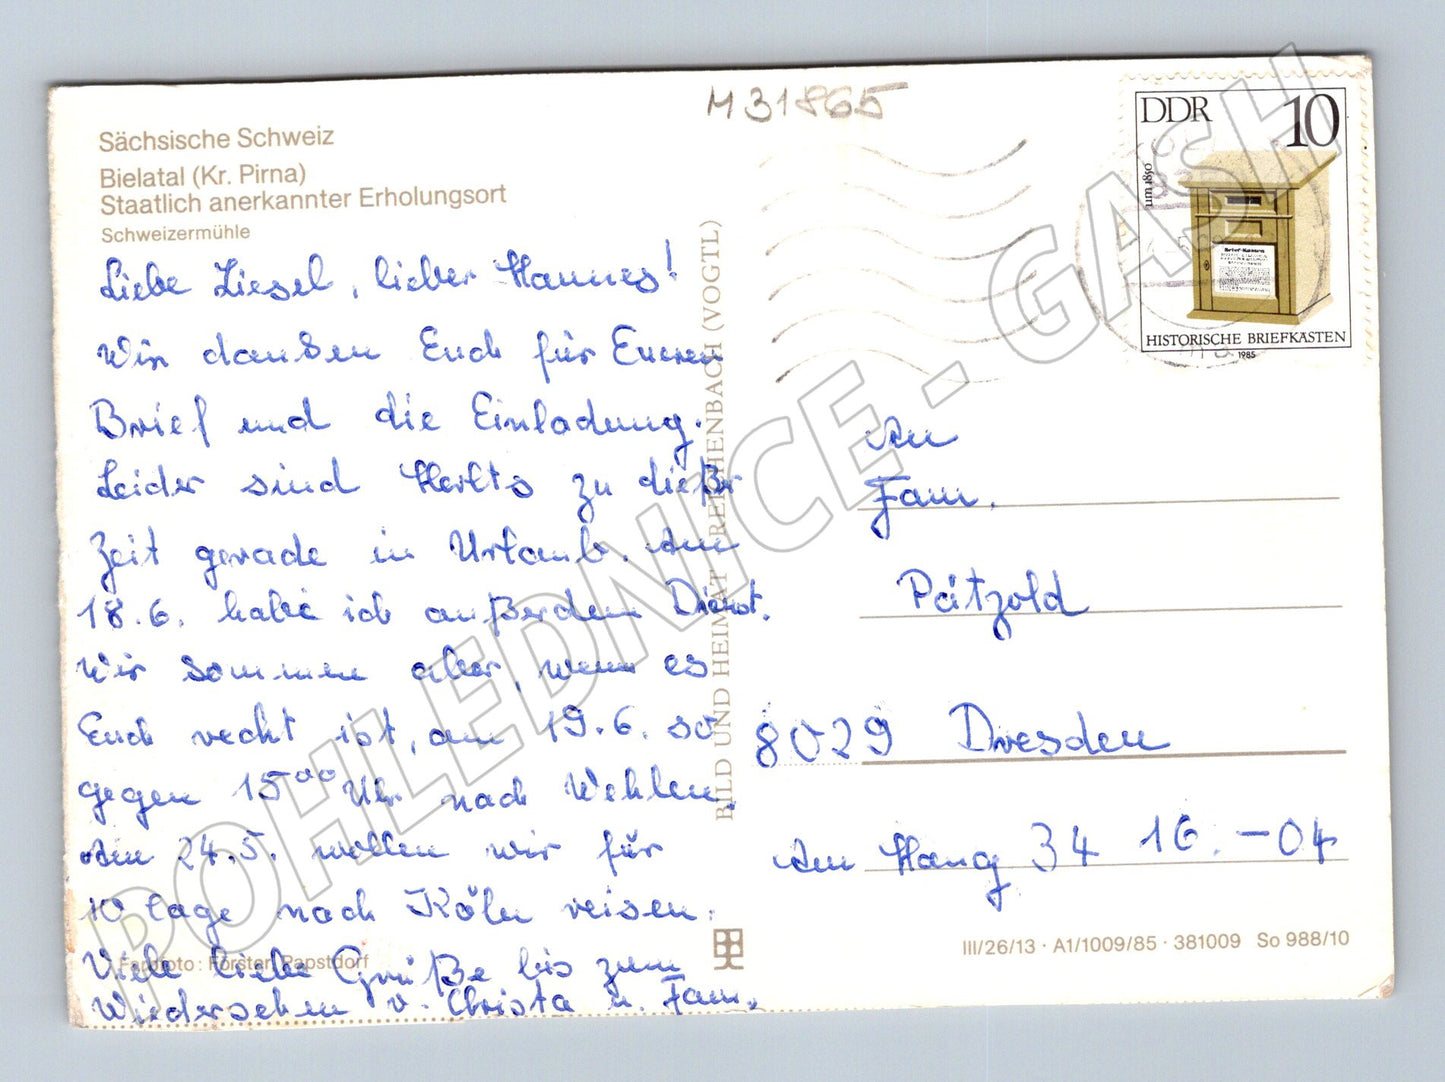 M31865
Sächsische Schweiz
Bielatal (Kr. Pirna)
Staatlich anerkannter Erholungsort
Schweizermühle
Liebe Liesel, lieber Hannes!
Wir danken Euch für Eueren
Brief und die Einladung.
Leider sind Herlts zu dießer
Zeit gerade in Urlaub. Am
18.6. habe ich außerdem Dienst.
Wir kommen aber, wenn es
Euch recht ist, am 19.6. so
gegen 15⁰⁰ Uhr nach Wehlen.
Am 24.5. wollen wir für
10 Tage nach Köln reisen.
Viele liebe Grüße bis zum
Wiedersehen v. Christa u. Fam.
Farbfoto: Förster, Papstdorf
BILD UND HEIMAT REICHENBACH (VOGTL)
DDR 10
um 1850
Brief-Kasten
HISTORISCHE BRIEFKÄSTEN
1985
An
Fam.
Pätzold
8029 Dresden
Am Hang 34 16. -04
III/26/13 · A1/1009/85 · 381009 So 988/10
POHLEDNICE - GASH